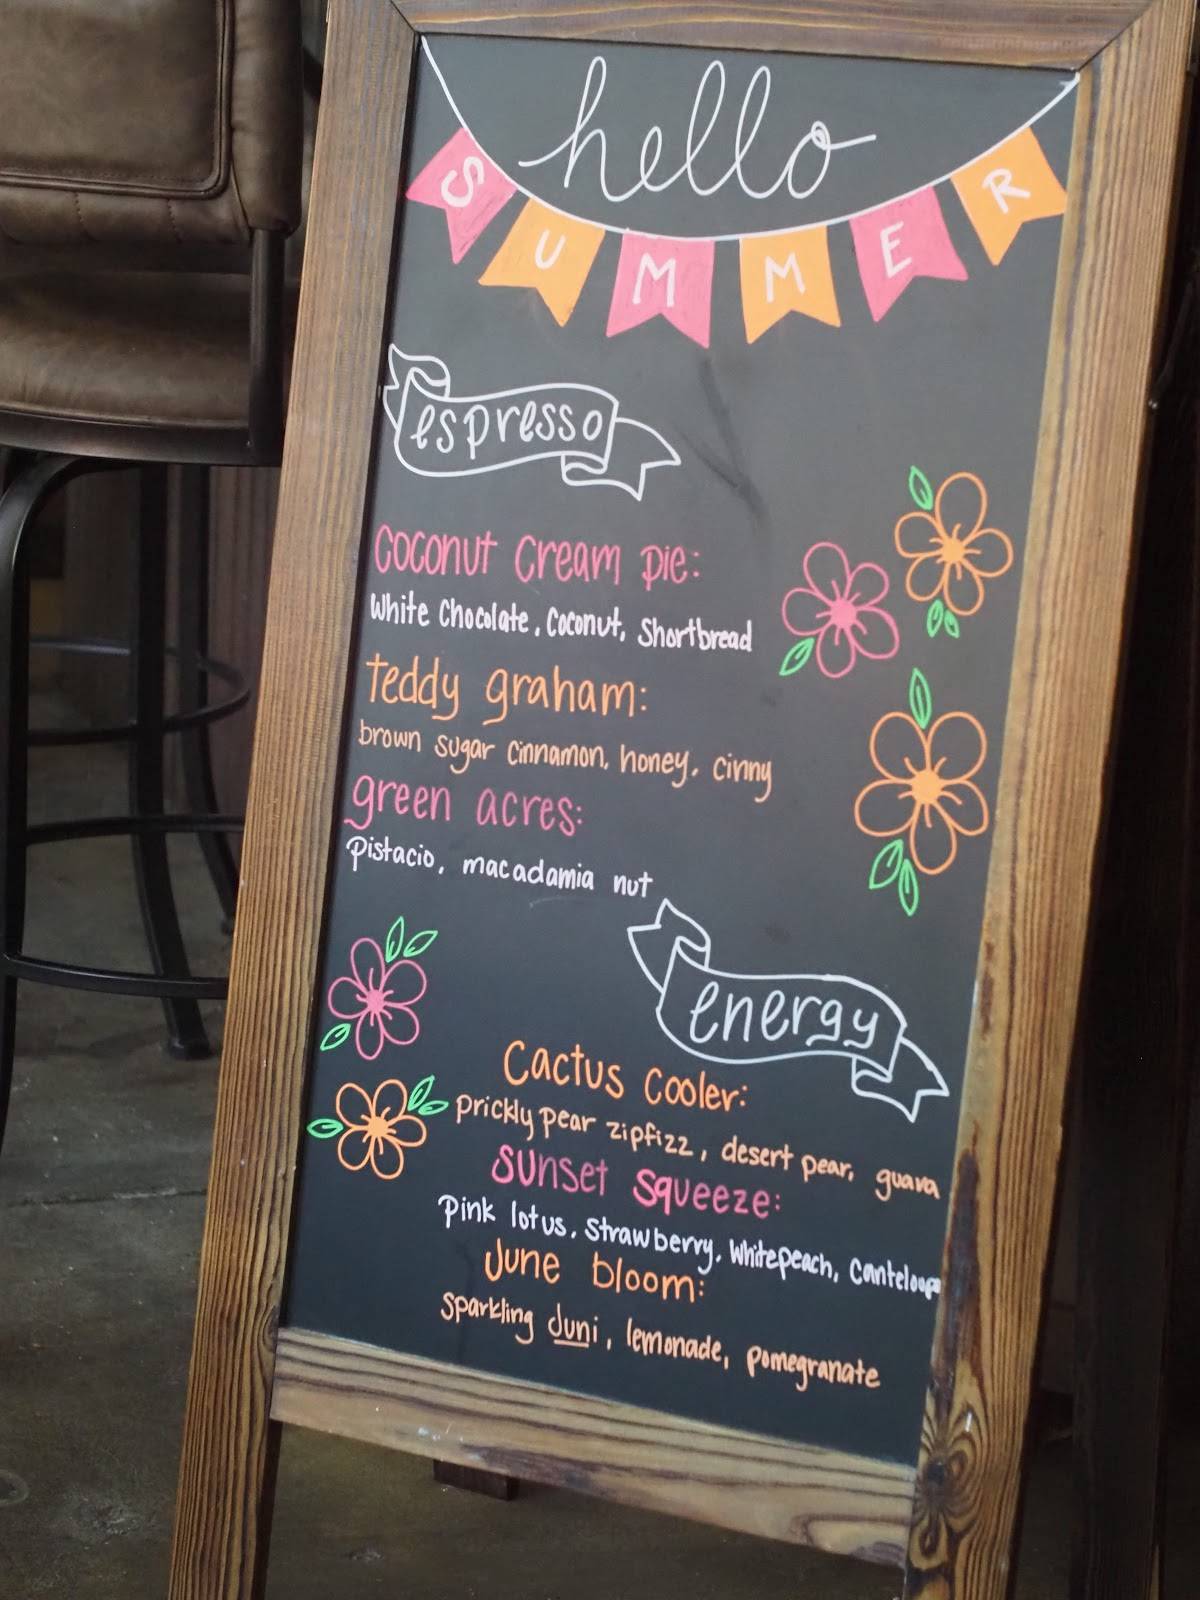 hello
SUMMER
espresso
coconut cream pie:
White Chocolate, Coconut, Shortbread
teddy graham:
brown sugar cinnamon, honey, cinny
green acres:
Pistacio, macadamia nut
energy
Cactus Cooler:
prickly pear zipfizz, desert pear, guava
sunset squeeze:
Pink lotus, Strawberry, Whitepeach, Canteloupe
June bloom:
Sparkling Juni, lemonade, pomegranate